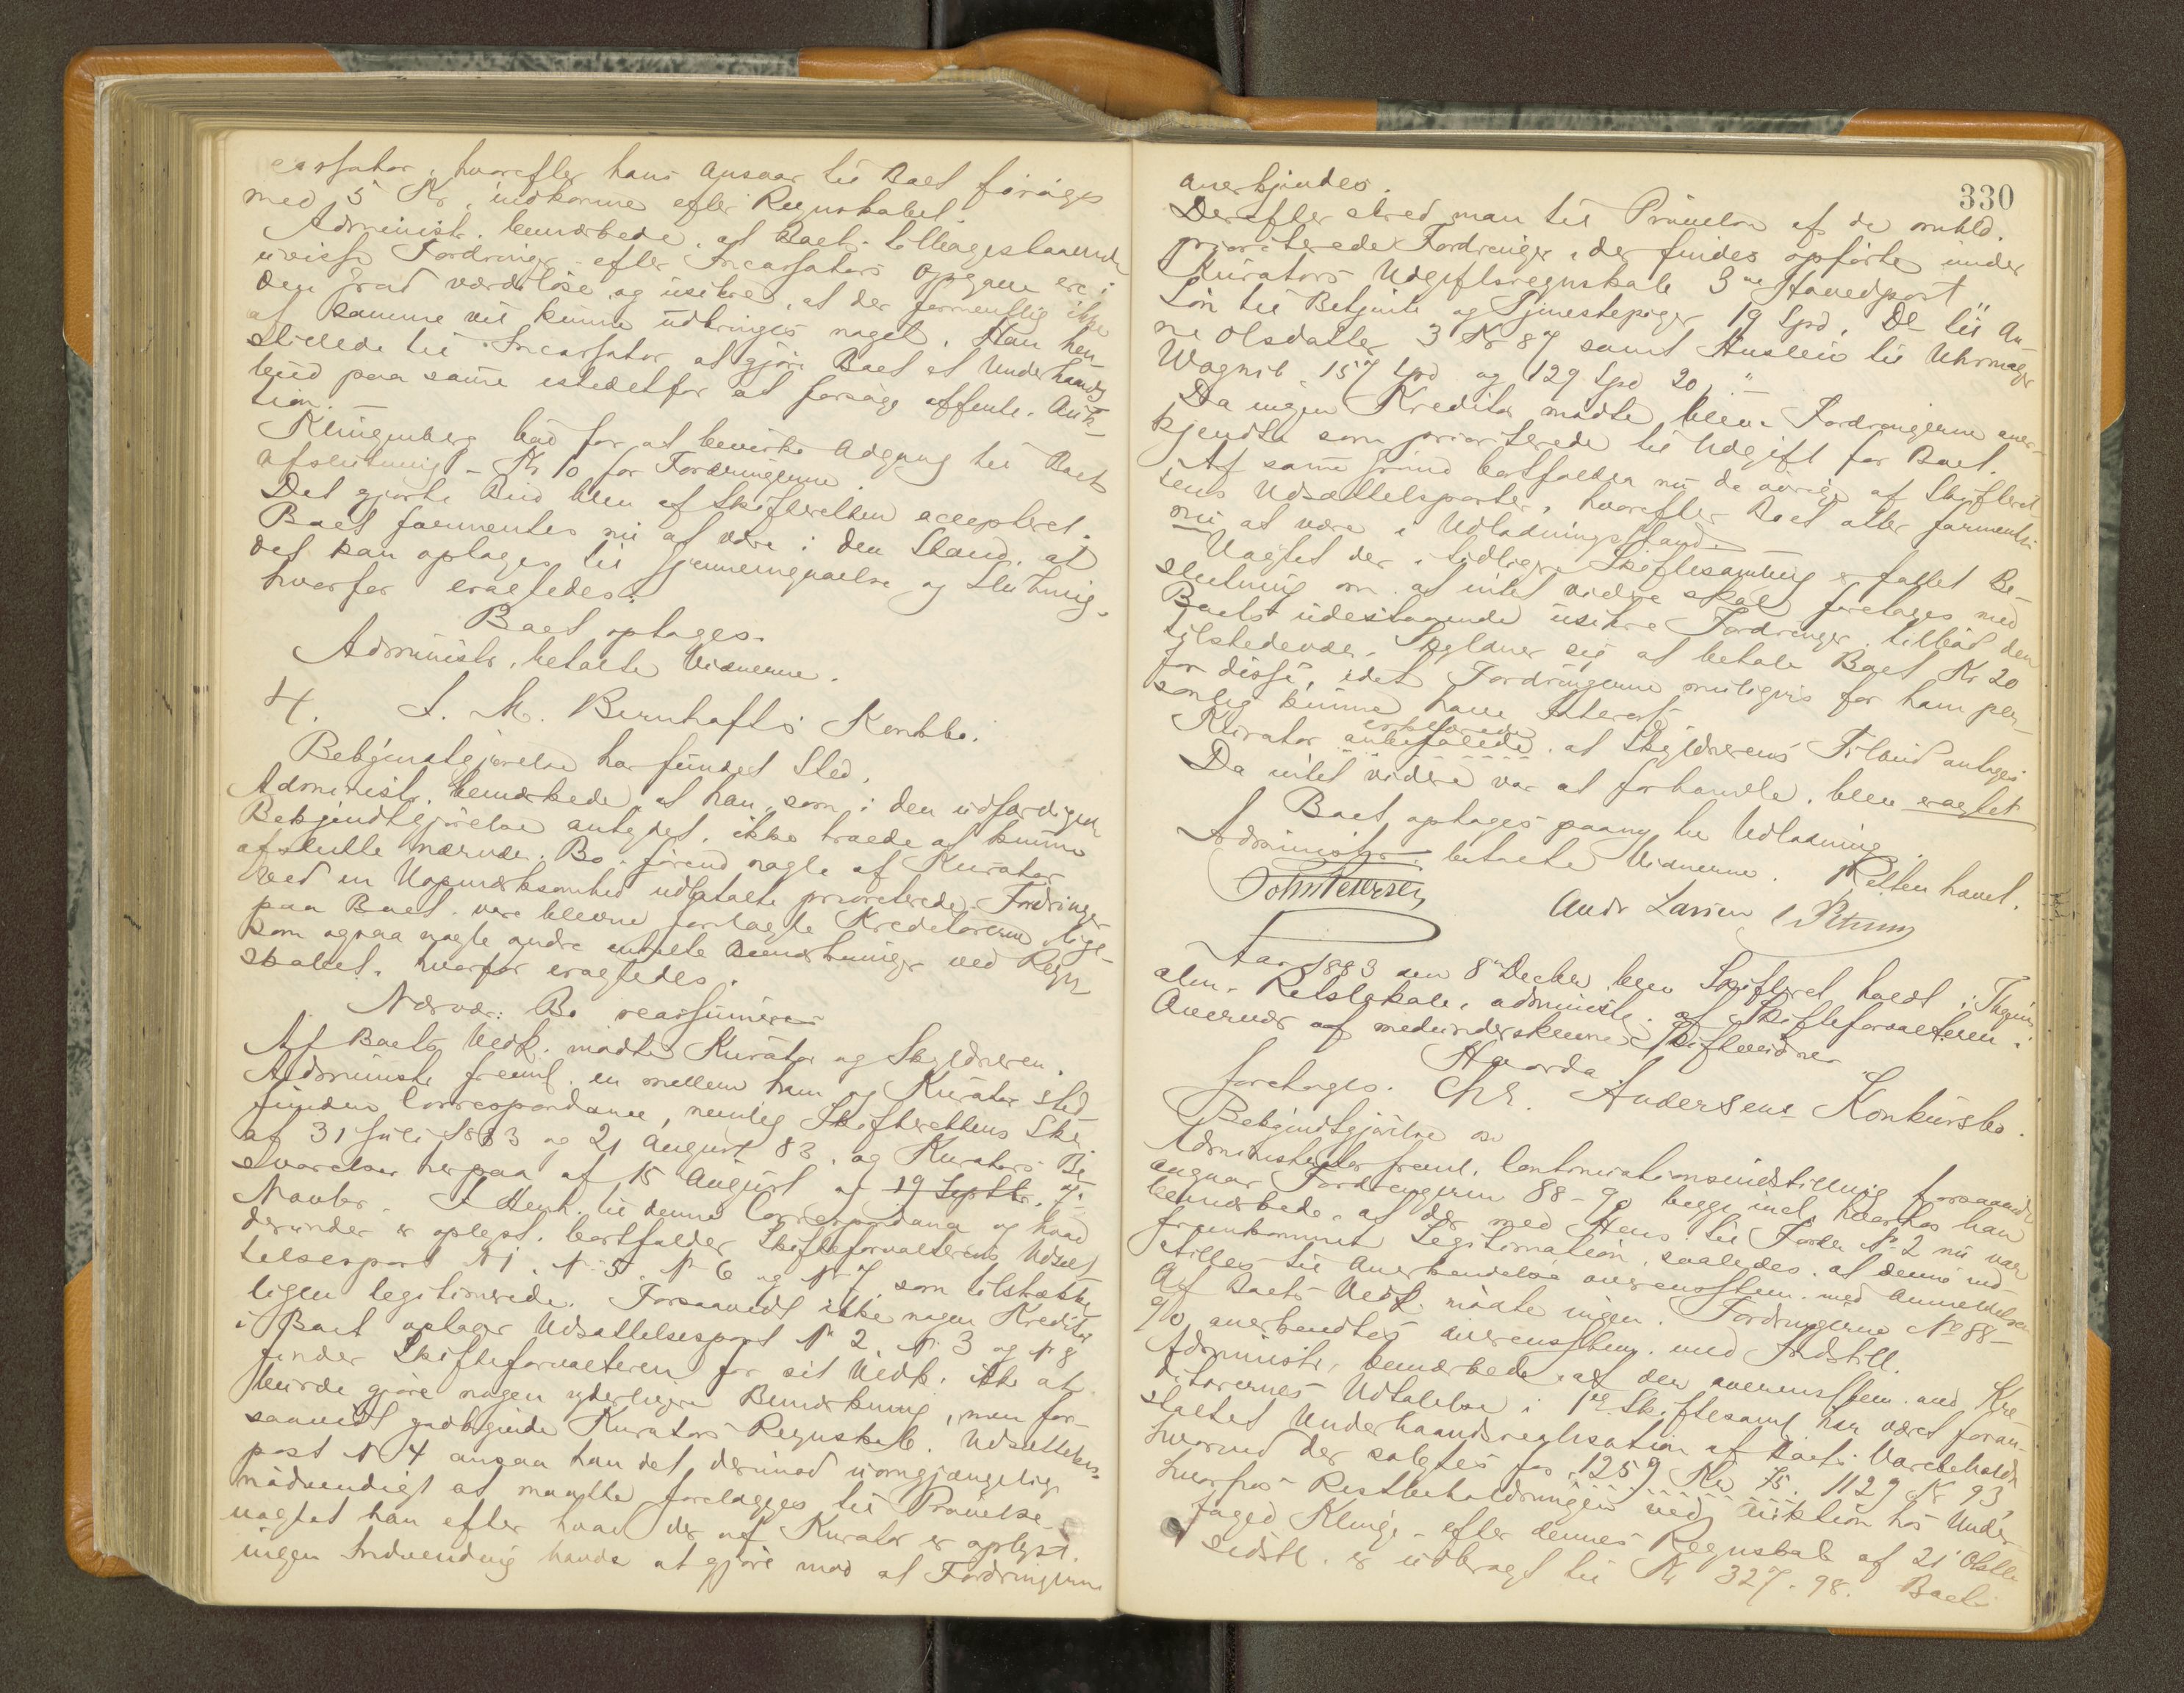 cassator, hvorefter hans Ansvar til Boet forøges
med 5 Kr. indkomne efter Regnskabet.
Administr. bemærkede, at Boets tilbagestaaende
uvisse Fordringer efter Incassators Opgave ere i
den Grad værdiløse og usikre, at der formentlig ikke
af samme vil kunne udbringes noget. Han hen-
stillede til Incassator at gjøre Boet et Underhaands
bud paa samme istedetfor at forsøge offentl. Auk-
tion.
Klingenberg bød for at bevirke Adgang til Boets
Afslutning - Kr 10 for Fordringerne.
Det gjorte Bud blev af Skifteretten accepteret.
Boet formentes nu at være i den Stand, at
det kan optages til Gjennemgaaelse og Slutning,
hvorfor eragtedes:
Boet optages.
Administr. betalte Vidnerne.
4. I. M. Bernhafts Konkbo.
Bekjendtgjørelse har fundet Sted.
Administr. bemærkede, at han, som i den udfærdigede
Bekjendtgjørelse antydet, ikke troede at kunne
afslutte nærvær. Bo, førend nogle af Kurator
ved en Uopmærksomhed udbetalte prioriterede Fordringer
paa Boet, vare blevne forelagte Kreditorerne, lige-
som ogsaa nogle andre antalte Bemærkninger ved Regn
skabet, hvorfor eragtedes:
Nærvær: Bo reassumeres
Af Boets Vedk. mødte Kurator og Skyldneren.
Administr. freml. en mellem ham og Kurator sted-
funden Correspondance, nemlig Skifterettens Skr.
af 31 Juli 1883 og 21 August 83, og Kurators Be-
svarelser herpaa af 15 August af 19 Septbr. og
Novbr. I Henh. til denne Correspondance og hvad
derunder er oplyst, bortfalder Skifteforvalterens Udsæt
telsespost N 1, N 5, N 6 og N 7, som tilstrække
ligen legitimerede. Forsaavidt ikke nogen Kreditor
i Boet optager Udsættelsespost N 2, N 3 og N 8
finder Skifteforvalteren for sit Vedk. ikke at
burde gjøre nogen yderligere Bemærkning, men for-
saavidt godkjende Kurators Regnskab. Udsættelses-
post N 4 ansaa han det derimod uomgjængelig
nødvendigt at maatte forelægges til Prøvelse
uagtet han efter hvad der af Kurator er oplyst,
ingen Indvending havde at gjøre mod at Fordringerne
330
anerkjendes.
Derefter skred man til Prøvelse af de omhld.
prioriterede Fordringer, der findes opførte under
Kurators Udgiftsregnskab 3die Hovedpost
Løn til Betjente og Tjenestepiger 19 Spd. Do til An-
ne Olsdatter 3 Kr 87 samt Husleie til Uhrmager
Wognild 157 Spd og 129 Spd 20 "
Da ingen Kreditor mødte, bleve Fordringerne aner-
kjendte som prioriterede til Udgift for Boet.
Af samme Grund bortfalder nu de øvrige af Skifteret-
tens Udsættelsposter, hvorefter Boet atter formentes
nu at være i Udlodningsstand.
Uagtet der i tidligere Skiftesamling er fattet Be-
slutning om at intet videre skal foretages med
Boets udestaaende usikre Fordringer, tilbød den
tilstedevær. Skyldner sig at betale Boet Kr 20
for disse, idet Fordringerne muligvis for ham per-
sonlig kunne have Interesse.
Kurator anbefalede, at Skyldnerens Tilbud antages
Da intet videre var at forhandle, blev eragtet
Boet optages paany til Udlodning.
Administr. betalte Vidnerne. Retten hævet.
John Petersen
Andr Larsen
Aar 1883 den 8de Decbr. blev Skifteret holdt i Thjems
alm. Retslokale, administr. af Skifteforvalteren i
Overvær af medunderskrevne Skiftevidner
Hvorda
foretoges. Chr. Andersens Konkursbo.
Bekjendtgjørelse os
Administrator freml. Continuationsindstilling forsaavidt
angaar Fordringerne 88 - 90 begge incl, hvorhos han
bemærkede, at der med Hens. til Fordr No 2 nu var
fremkommet Legitimation, saaledes at denne ind-
stilles til Anerkendelse overensstem. med Anmeldelsen
Af Boets Vedk. mødte ingen. Fordringerne No 88-
90 anerkendtes overensstem. med Indstill.
Administr. bemærkede, at der overensstem. med Kre-
ditorernes Udtalelse i 1ste Skiftesaml har været foran-
staltet Underhaandsrealisation af Boets Varebeholdn.
hvorved der solgtes for 1259 Kr 75. 1129 Kr 93,
hvorhos Restbeholdningen ved Auktion hos Under-
foged Klinge - efter dennes Regnskab af 21 Oktbr
sidstl. er udbragt til Kr 327.98. Boets